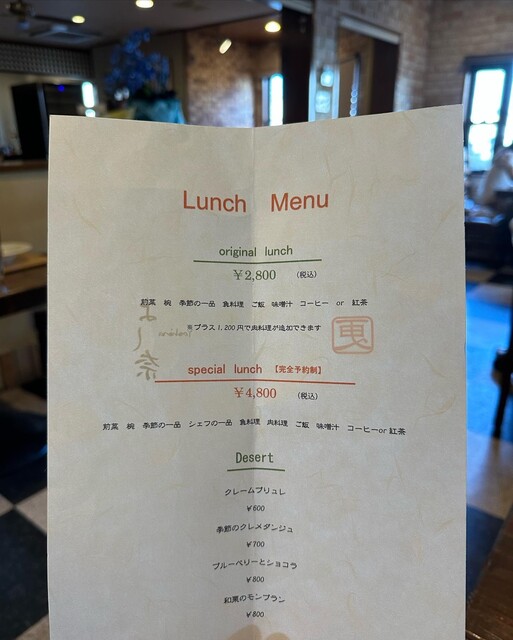 Lunch Menu
original lunch
￥2,800 (税込)
前菜 椀 季節の一品 魚料理 ご飯 味噌汁 コーヒー or 紅茶
※プラス1,200円で肉料理が追加できます
よし奈
special lunch 【完全予約制】
￥4,800 (税込)
前菜 椀 季節の一品 シェフの一品 魚料理 肉料理 ご飯 味噌汁 コーヒーor紅茶
Desert
クレームブリュレ
￥600
季節のクレメダンジュ
￥700
ブルーベリーとショコラ
￥800
和栗のモンブラン
￥800